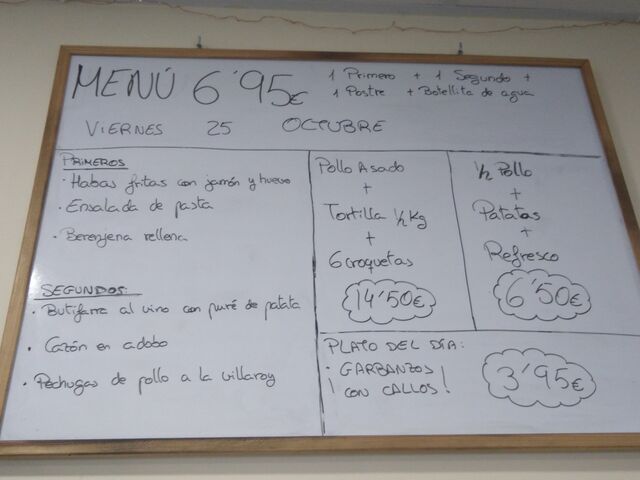 MENÚ 6'95€
1 Primero + 1 Segundo +
1 Postre + Botellita de agua
VIERNES 25 OCTUBRE
PRIMEROS
· Habas fritas con jamón y huevo
· Ensalada de pasta
· Berenjena rellena
SEGUNDOS:
· Butifarra al vino con puré de patata
· Cazón en adobo
· Pechugas de pollo a la villaroy
Pollo Asado
+
Tortilla 1/2 Kg
+
6 croquetas
14'50€
1/2 Pollo
+
Patatas
+
Refresco
6'50€
PLATO DEL DÍA:
· GARBANZOS
¡ CON CALLOS !
3'95€